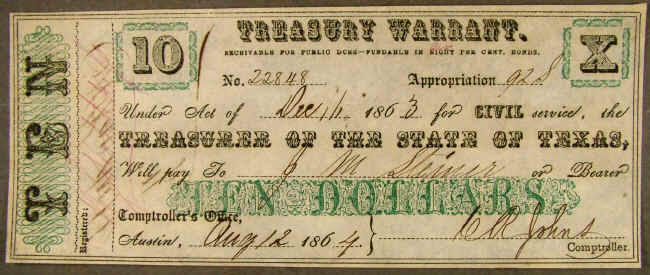 TREASURY WARRANT.
RECEIVABLE FOR PUBLIC DUES—FUNDABLE IN EIGHT PER CENT. BONDS.
10
X
TEN
Registered:
No. 22848 Appropriation 928
Under Act of Dec 14 1863 for CIVIL service, the
TREASURER OF THE STATE OF TEXAS,
Will pay To J M Steiner or Bearer
TEN DOLLARS.
Comptroller's Office,
Austin, Aug 12 1864.
C R Johns
Comptroller.